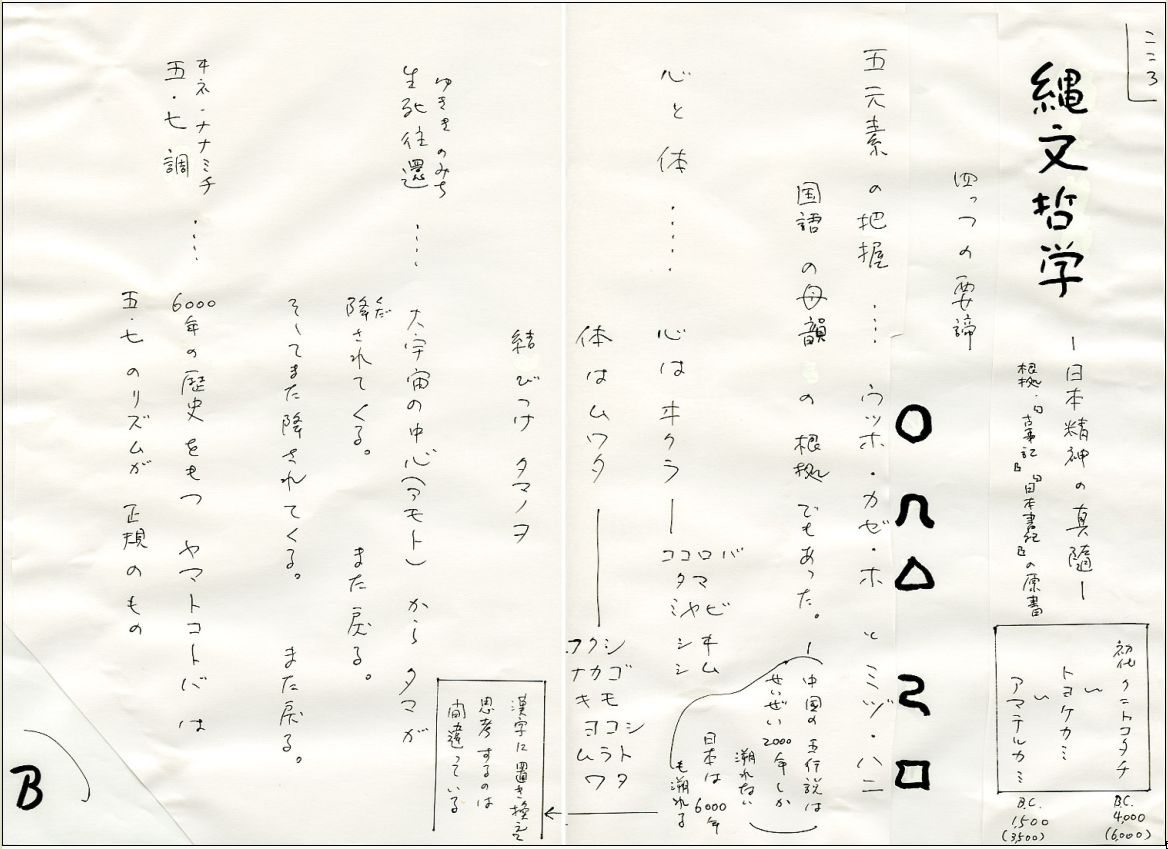 こころ
縄文哲学
ー日本精神の真髄ー
根拠・『古事記』『日本書紀』の原書
初代クニトコタチ
〜
トヨケカミ
〜
アマテルカミ
B.C.
4,000
(6,000)
B.C.
1,500
(3,500)
四つの要諦
五元素の把握 …… ウツホ・カゼ・ホとミヅ・ハニ
国語の母韻の根拠でもあった。
ー中国の五行説は
せいぜい2000年しか
溯れない
日本は6000年
も溯れる
心と体 …… 心はヰクラー
ココロバ
タマ
ミヤビ
シヰ
シム
体はムワターー
フクシ
ナカゴ
キモ
ヨコシ
ムラト
ワタ
結びつけ タマノヲ
漢字に置き換えて
思考するのは
間違っている
ゆききのみち
生死往還 …… 大宇宙の中心(アモト)からタマが
くだ
降されてくる。 また戻る。
そしてまた降されてくる。 また戻る。
ヰネ・ナナミチ
五・七調 …… 6000年の歴史をもつ ヤマトコトバは
五・七のリズムが 正規のもの
B